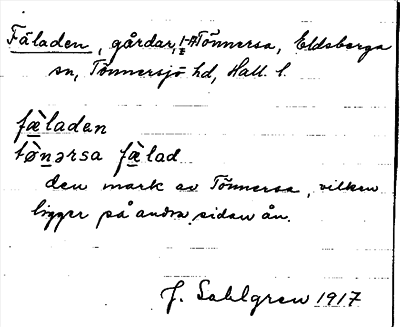 Fäladen, gårdar, 1-A Tönnersa, Eldsberga
sn, Tönnersjö hd, Hall. l.
fæ̀laden
tø̀nərsa fæ̀lad
den mark av Tönnersa, vilken
ligger på andra sidan ån.
J. Sahlgren 1917